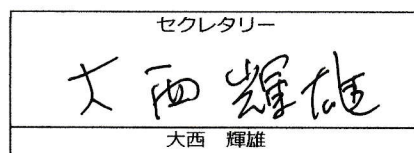 セクレタリー
大西輝雄
大西　輝雄